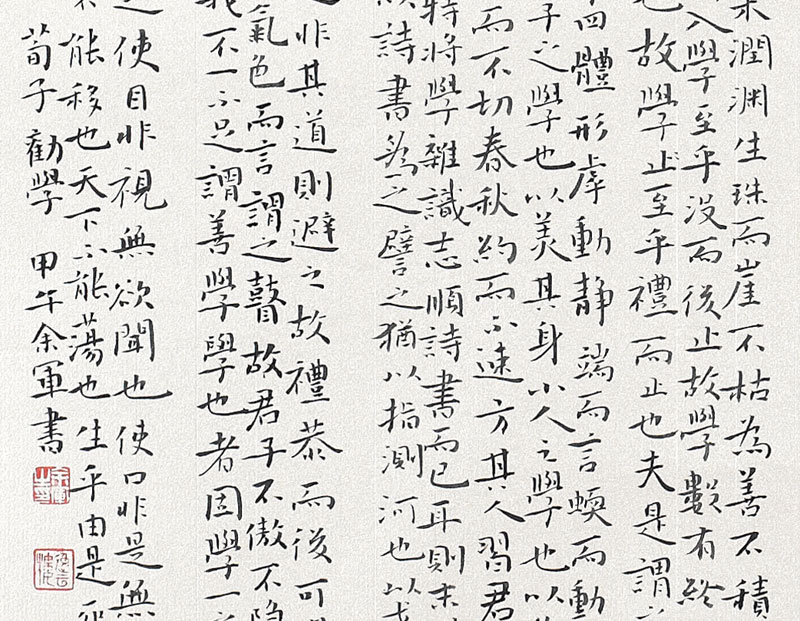 木潤淵生珠而崖不枯為善不積
入學至乎沒而後止故學數有終
也故學止至乎禮而止也夫是謂
乎四體形虖動靜端而言蝡而動
子之學也以美其身小人之學也以
而不切春秋約而不速方其人習君
特將學雜識志順詩書而已耳則末
以詩書為之譬之猶以指測河也以戈
非其道則避之故禮恭而後可
氣色而言謂之瞽故君子不傲不隱
義不一不足謂善學學也者固學一
使目非視無欲聞也使口非是無
不能移也天下不能蕩也生乎由是死
荀子勸學 甲午余軍書